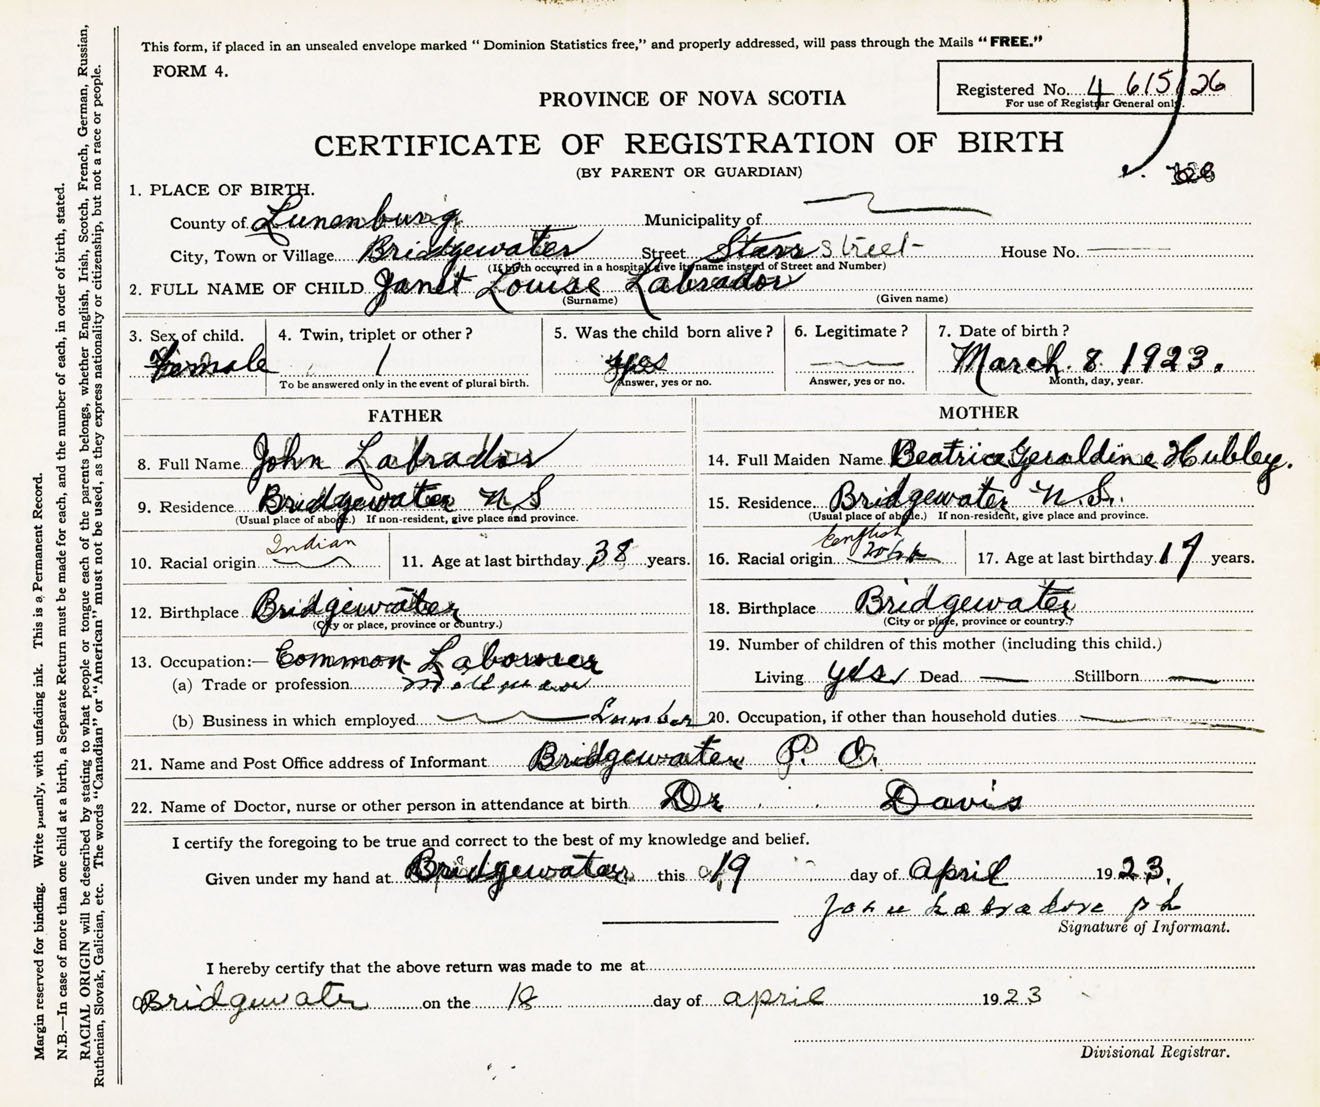 This form, if placed in an unsealed envelope marked "Dominion Statistics free," and properly addressed, will pass through the Mails "FREE."
FORM 4.
Registered No. 4 615/26
For use of Registrar General only.
PROVINCE OF NOVA SCOTIA
CERTIFICATE OF REGISTRATION OF BIRTH
(BY PARENT OR GUARDIAN)
1. PLACE OF BIRTH.
County of Lunenburg Municipality of
City, Town or Village Bridgewater Street Starr Street House No.
(If birth occurred in a hospital give its name instead of Street and Number)
2. FULL NAME OF CHILD Janet Louise Labrador
(Surname) (Given name)
3. Sex of child. 4. Twin, triplet or other? 5. Was the child born alive? 6. Legitimate? 7. Date of birth?
Female 1 yes March. 8 1923.
To be answered only in the event of plural birth. Answer, yes or no. Answer, yes or no. Month, day, year.
FATHER MOTHER
8. Full Name John Labrador 14. Full Maiden Name Beatrice Geraldine Hubley.
9. Residence Bridgewater N S 15. Residence Bridgewater N.S.
(Usual place of abode.) If non-resident, give place and province. (Usual place of abode.) If non-resident, give place and province.
10. Racial origin Indian 11. Age at last birthday 38 years. 16. Racial origin English 17. Age at last birthday 19 years.
12. Birthplace Bridgewater 18. Birthplace Bridgewater
(City or place, province or country.) (City or place, province or country.)
13. Occupation:— Common Labourer 19. Number of children of this mother (including this child.)
(a) Trade or profession Living yes Dead — Stillborn —
(b) Business in which employed Lumber 20. Occupation, if other than household duties
21. Name and Post Office address of Informant Bridgewater P. O.
22. Name of Doctor, nurse or other person in attendance at birth Dr Davis
I certify the foregoing to be true and correct to the best of my knowledge and belief.
Given under my hand at Bridgewater this 19 day of April 1923.
John Labradore
Signature of Informant.
I hereby certify that the above return was made to me at
Bridgewater on the 18 day of April 1923
Divisional Registrar.
Margin reserved for binding. Write plainly, with unfading ink. This is a Permanent Record.
N.B.—In case of more than one child at a birth, a Separate Return must be made for each, and the number of each, in order of birth, stated.
RACIAL ORIGIN will be described by stating to what people or tongue each of the parents belongs, whether English, Irish, Scotch, French, German, Russian,
Ruthenian, Slovak, Galician, etc. The words "Canadian" or "American" must not be used, as they express nationality or citizenship, but not a race or people.